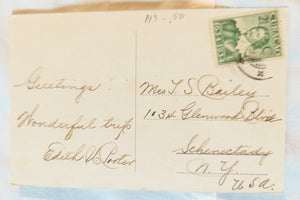 113-.50
CURAÇAO
Greetings!
Wonderful trip
Edith V. Porter
Mrs T. S. Bailey
1034 Glenwood Blvd
Schenectady
N.Y.
USA.